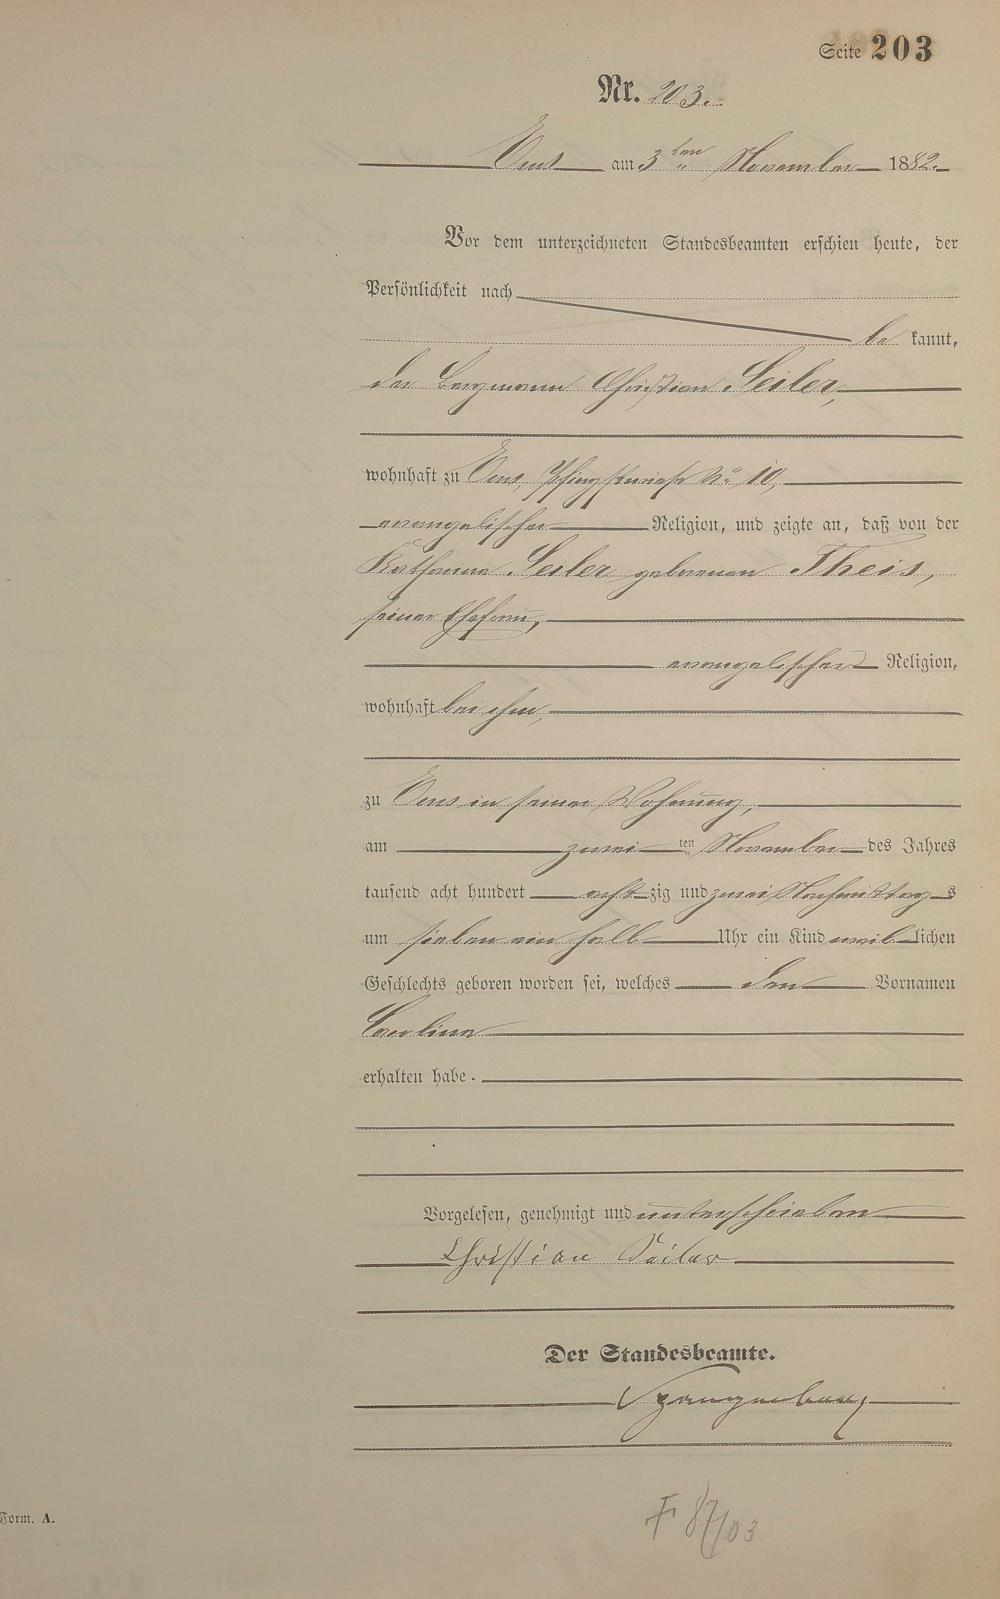 Seite 203
Nr. 203.
Ems am 3ten November 1882.
Vor dem unterzeichneten Standesbeamten erschien heute, der
Persönlichkeit nach
be kannt,
der Bergmann Christian Seiler,
wohnhaft zu Ems, No 10,
evangelischer Religion, und zeigte an, daß von der
Katharina Seiler geborenen Theis,
seiner Ehefrau,
evangelischer Religion,
wohnhaft bei ihm,
zu Ems in seiner Wohnung,
am zwei ten November des Jahres
tausend acht hundert acht zig und zwei Nachmittag s
um sieben ein halb Uhr ein Kind weib lichen
Geschlechts geboren worden sei, welches den Vornamen
Carolina
erhalten habe.
Vorgelesen, genehmigt und unterschrieben
Christian Seiler
Der Standesbeamte.
Spangenberg
F 87/03
Form. A.